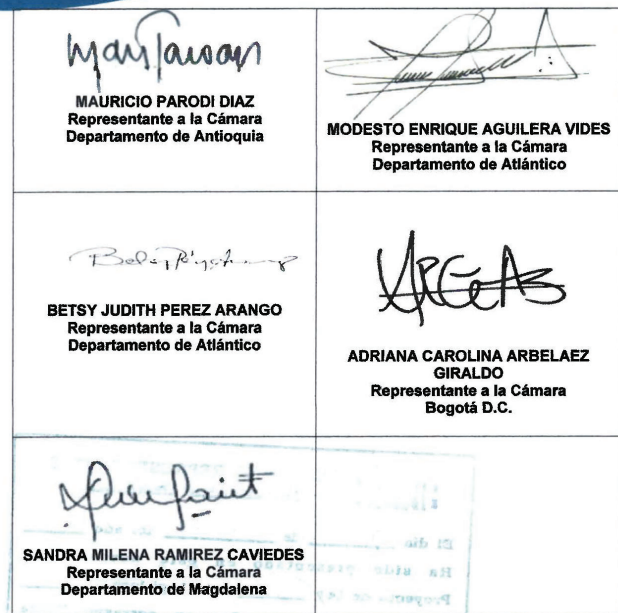 MAURICIO PARODI DIAZ
Representante a la Cámara
Departamento de Antioquia
MODESTO ENRIQUE AGUILERA VIDES
Representante a la Cámara
Departamento de Atlántico
BETSY JUDITH PEREZ ARANGO
Representante a la Cámara
Departamento de Atlántico
ADRIANA CAROLINA ARBELAEZ
GIRALDO
Representante a la Cámara
Bogotá D.C.
SANDRA MILENA RAMIREZ CAVIEDES
Representante a la Cámara
Departamento de Magdalena
El día de
Ha sido presentado en este
Proyecto de ley